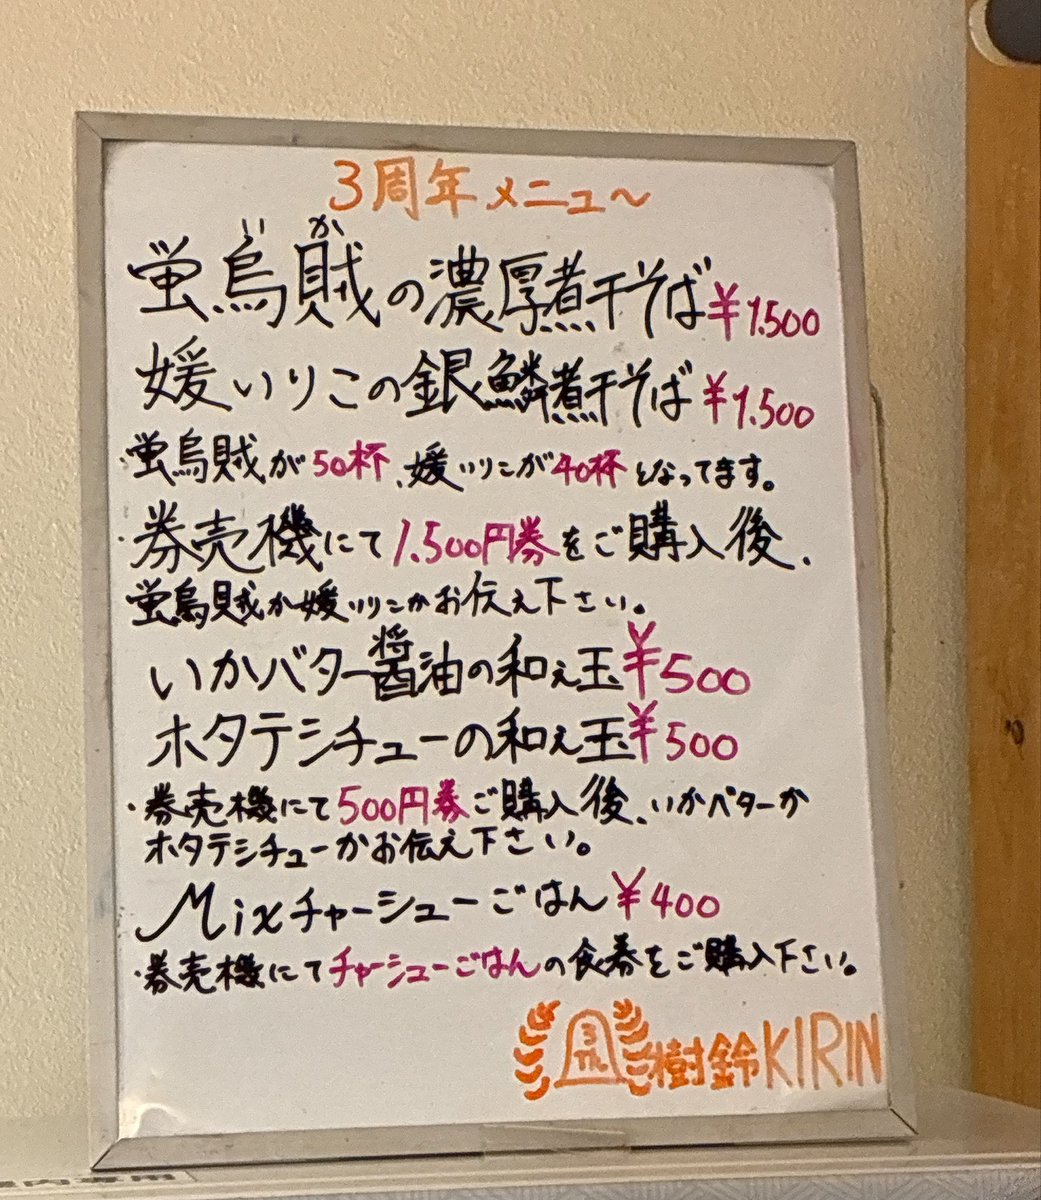 3周年メニュ〜
いか
蛍烏賊の濃厚煮干そば¥1.500
媛いりこの銀鱗煮干そば¥1.500
・蛍烏賊が50杯、媛いりこが40杯となってます。
・券売機にて1.500円券をご購入後、
蛍烏賊か媛いりこかお伝え下さい。
いかバター醤油の和え玉¥500
ホタテシチューの和え玉¥500
・券売機にて500円券ご購入後、いかバターか
ホタテシチューかお伝え下さい。
Mixチャーシューごはん¥400
・券売機にてチャーシューごはんの食券をご購入下さい。
3
TH
樹鈴KIRIN
内専用